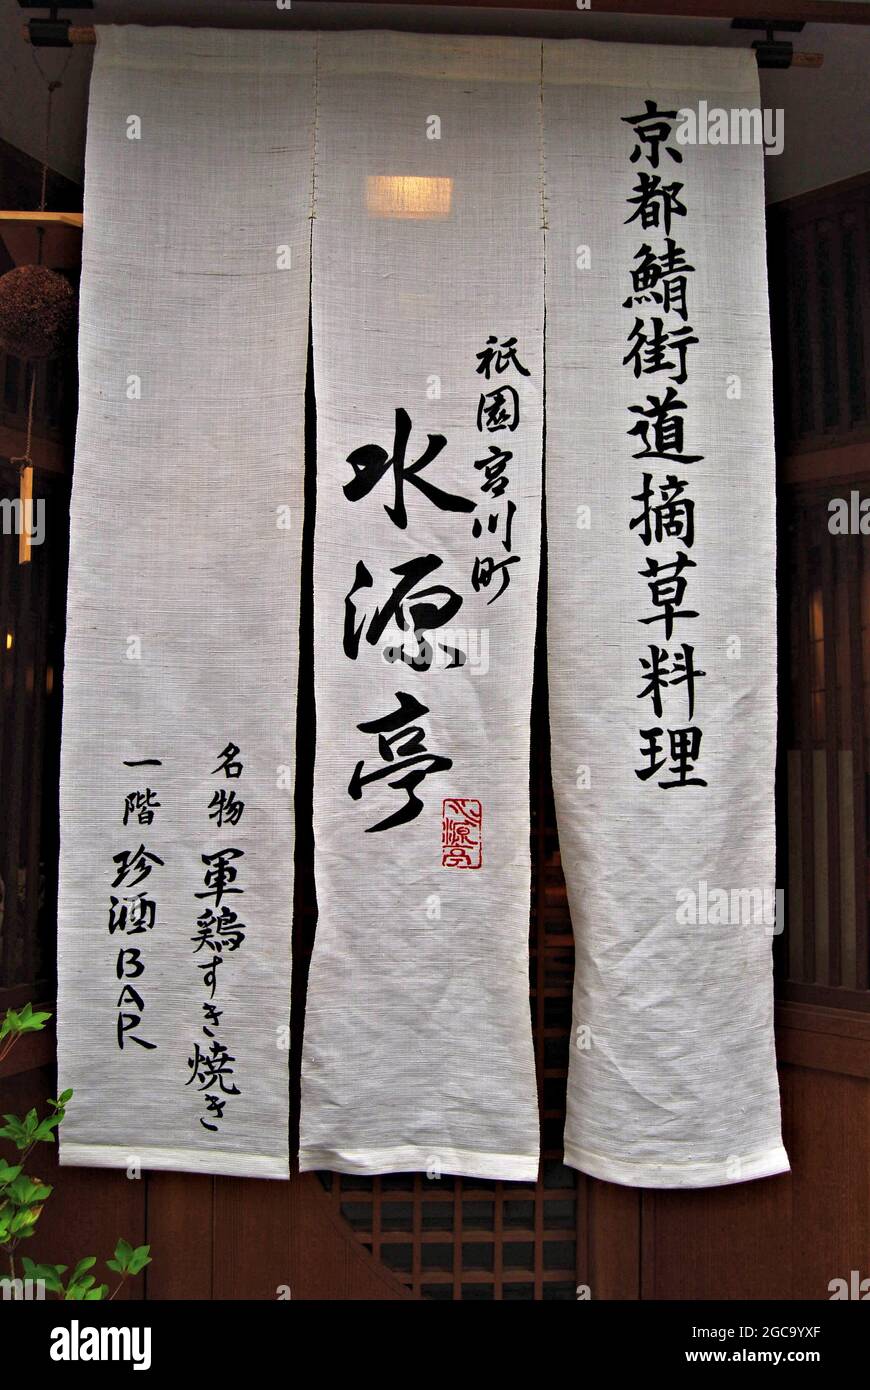 京都鯖街道摘草料理
祇園宮川町
水源亭
水源亭
名物 軍鶏すき焼き
一階 珍酒BAR
alamy
alamy
a
Image ID: 2GC9YXF
www.alamy.com